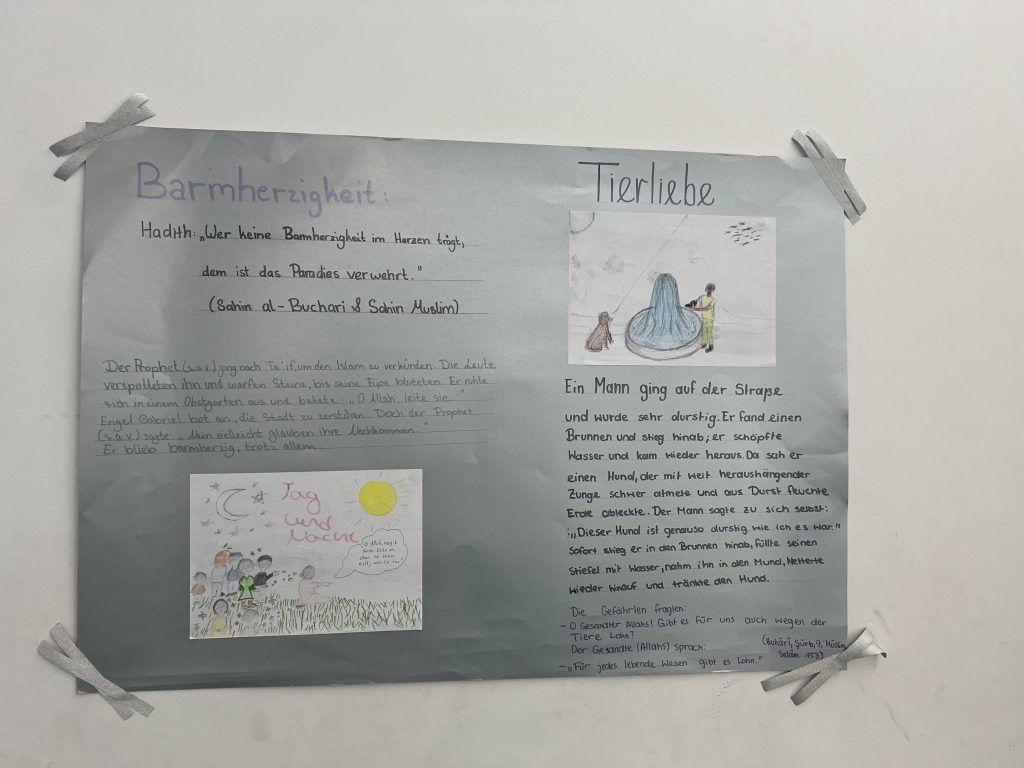 Barmherzigkeit:
Hadith: „Wer keine Barmherzigkeit im Herzen trägt,
dem ist das Paradies verwehrt."
(Sahin al-Buchari & Sahin Muslim)
Der Prophet (s.a.v.) ging nach Ta'if, um den Islam zu verkünden. Die Leute
verspotteten ihn und warfen Steine, bis seine Füße bluteten. Er ruhte
sich in einem Obstgarten aus und betete: „O Allah, leite sie."
Engel Gabriel bot an, die Stadt zu zerstören. Doch der Prophet
(s.a.v.) sagte: „Nein vielleicht glauben ihre Nachkommen."
Er blieb barmherzig, trotz allem.
Tag
und
Nacht
O Allah,
Tierliebe
Ein Mann ging auf der Straße
und wurde sehr durstig. Er fand einen
Brunnen und stieg hinab; er schöpfte
Wasser und kam wieder heraus. Da sah er
einen Hund, der mit weit heraushängender
Zunge schwer atmete und aus Durst feuchte
Erde ableckte. Der Mann sagte zu sich selbst:
„Dieser Hund ist genauso durstig wie ich es war."
Sofort stieg er in den Brunnen hinab, füllte seinen
Stiefel mit Wasser, nahm ihn in den Mund, kletterte
wieder hinauf und tränkte den Hund.
Die Gefährten fragten:
- O Gesandter Allahs! Gibt es für uns auch wegen der
Tiere Lohn?
Der Gesandte (Allahs) sprach:
- „Für jedes lebende Wesen gibt es Lohn."
(Buhârî, Şürb, 9, Müslim,
Selâm 153)